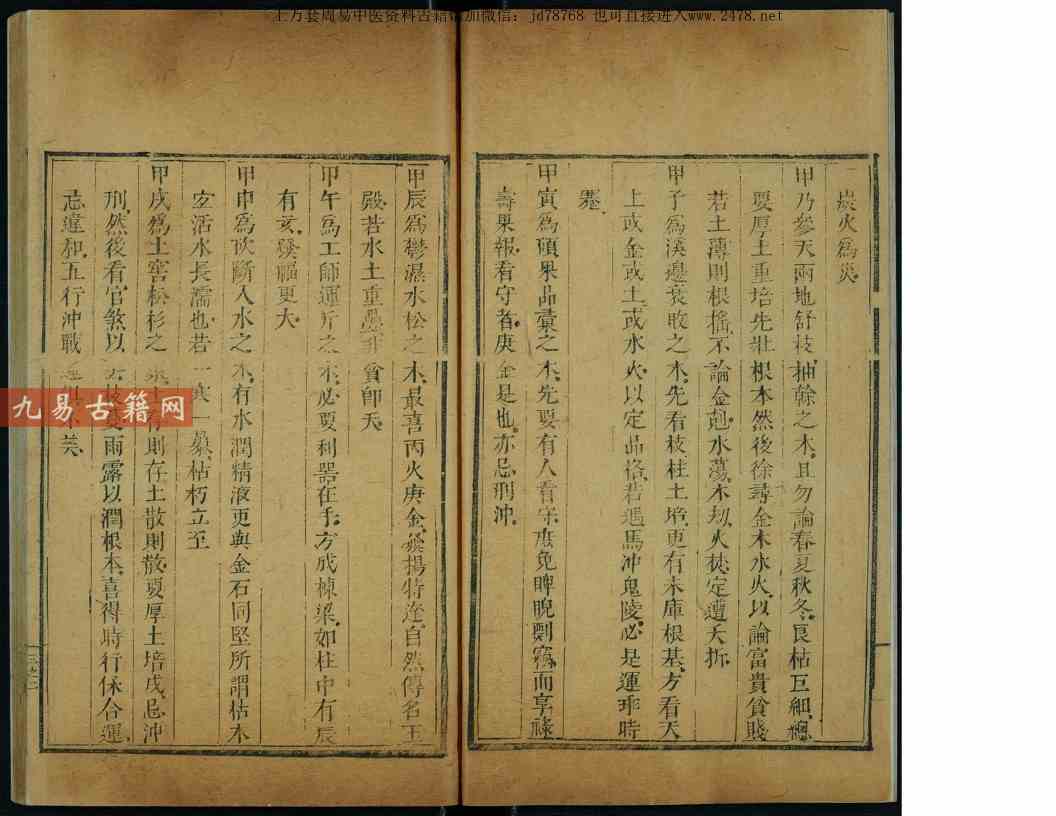 上万套周易中医资料古籍请加微信：jd78768 也可直接进入www.2478.net
炭火為災
甲乃參天兩地舒枝抽榦之木且勿論春夏秋冬良枯巨細總
要厚土重培先壯根本然後徐尋金木水火以論富貴貧賤
若土薄則根搖不論金剋水蕩木刼火焚定遭夭折
甲子為溪邊衰敗之木先看枝柱土培更有木庫根基方看天
上或金或土或水火以定品格若遇馬沖鬼陵必是運乖時
蹇
甲寅為碩果品彙之木先要有人看守庶免睥睨剽竊而享祿
壽果報看守者庚金是也亦忌刑沖
甲辰為鬱濕水松之木最喜丙火庚金發揚特達自然傳名玉
殿若水土重疊非貧即夭
甲午為工師運斤之木必要利器在手方成棟梁如柱中有辰
有亥癸福更大
甲申為砍斷入水之木有水潤精液更與金石同堅所謂枯木
宜活水長濡也若一寒一暴枯朽立至
甲戌為土窖松杉之木土存則存土散則散要厚土培戌忌沖
刑然後看官煞以雨露以潤根本喜得時行休合運
忌違和五行沖戰美
九易古籍网